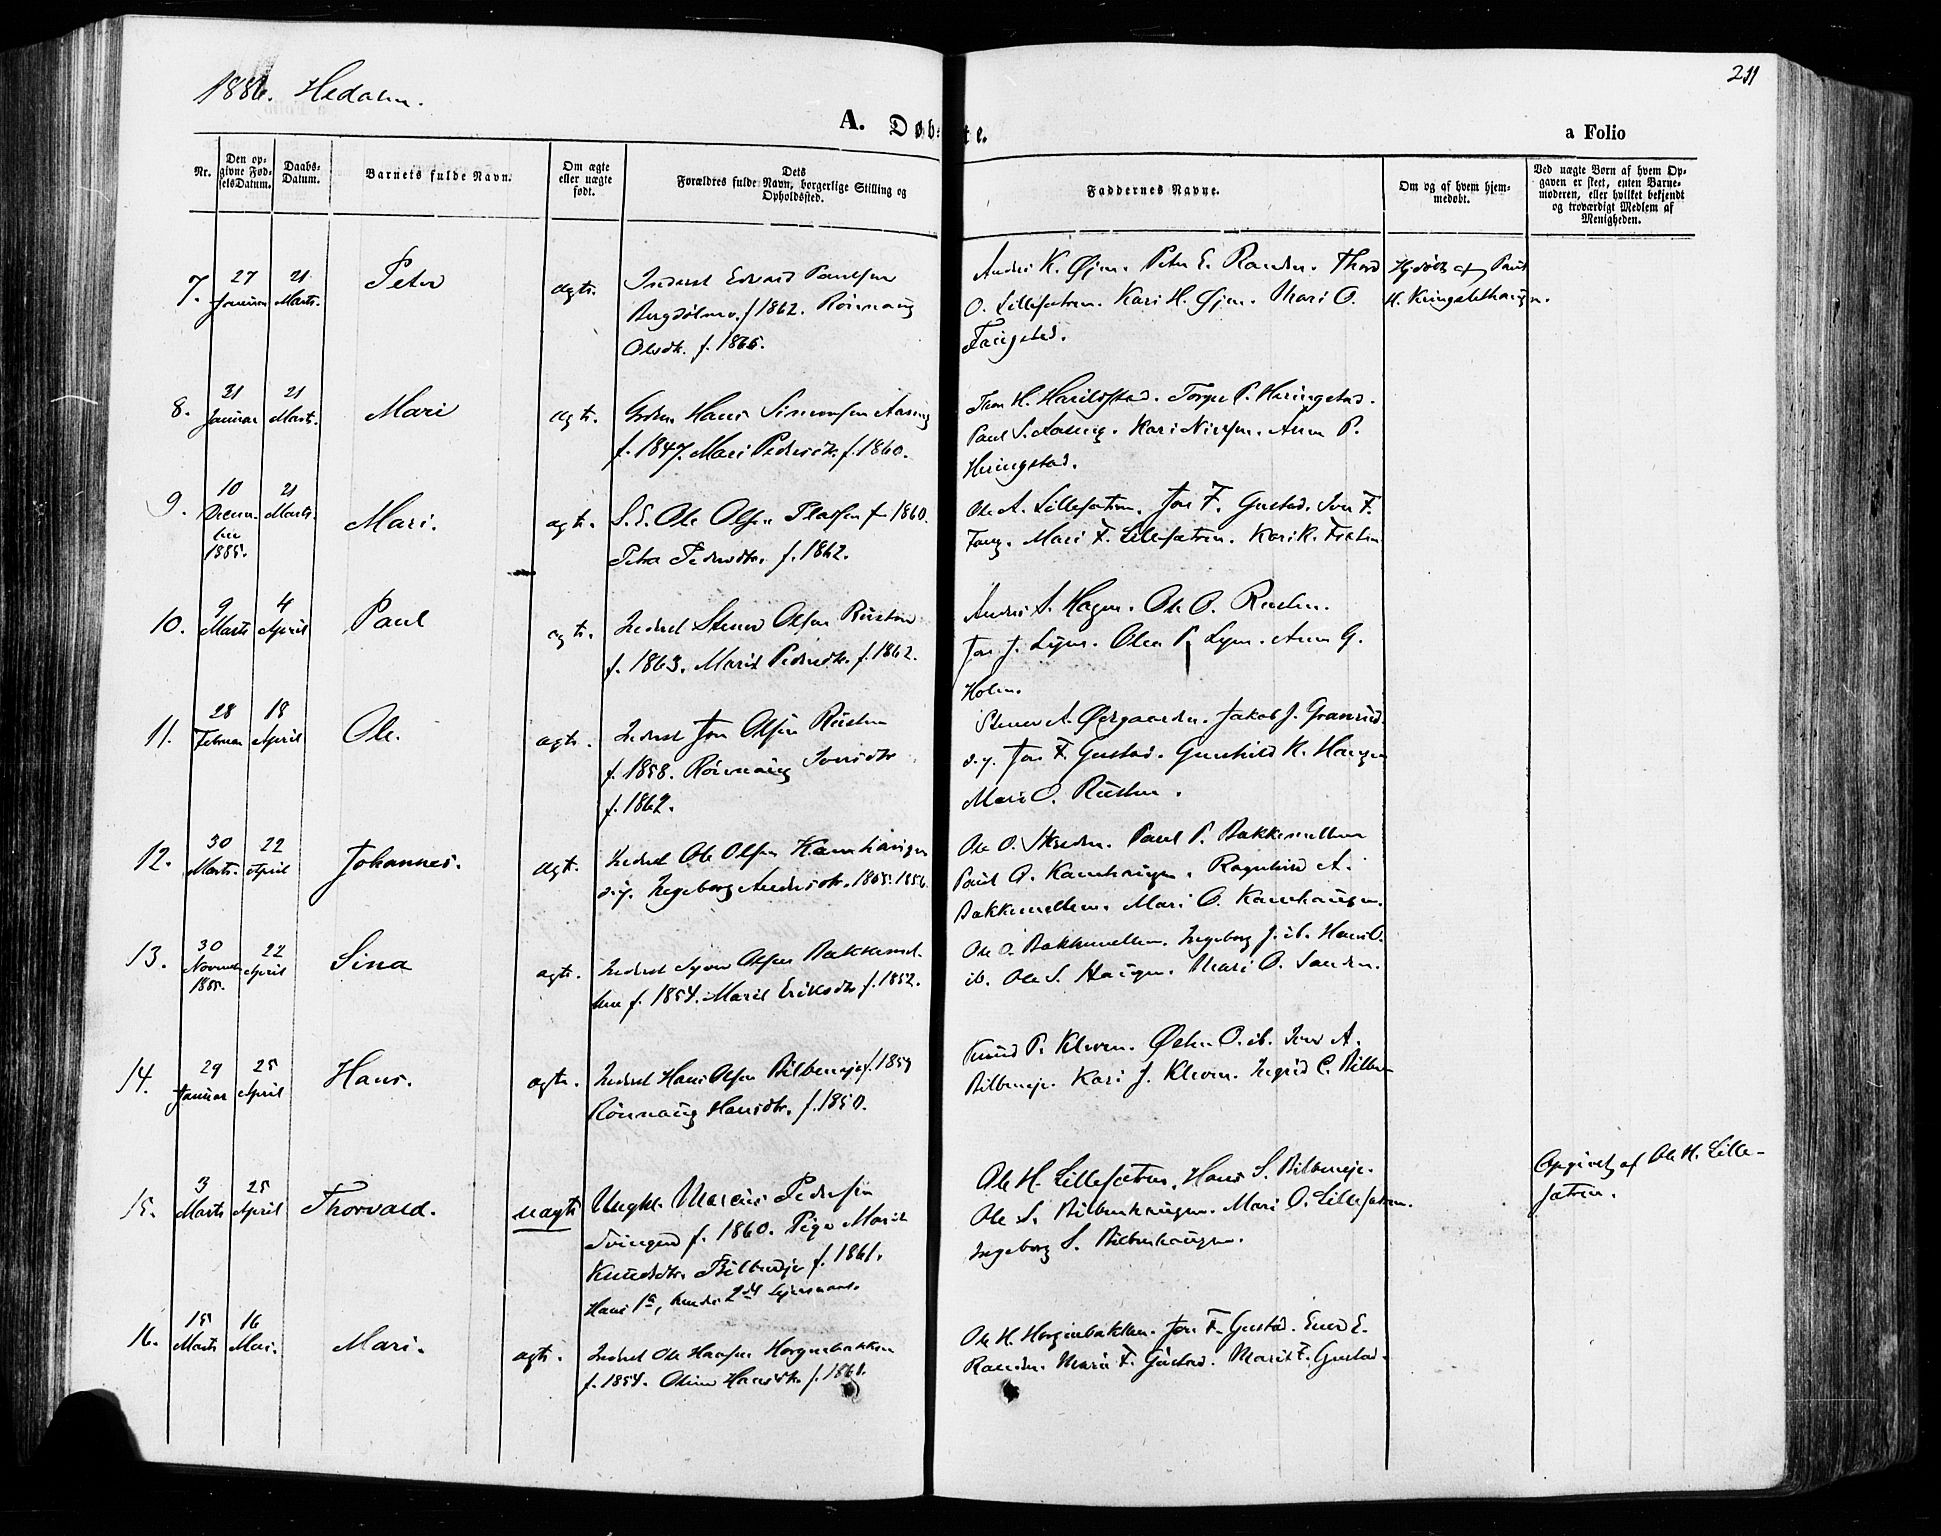 1886. Hedalen.
211
A. Døbte.
a Folio
Nr.
Den op-
givne Fød-
selsDatum.
Daabs-
Datum.
Barnets fulde Navn.
Om ægte
eller uægte
født.
Dets
Forældres fulde Navn, borgerlige Stilling og
Opholdssted.
Faddernes Navne.
Om og af hvem hjem-
medøbt.
Ved uægte Børn af hvem Op-
gaven er skeet, enten Barne-
moderen, eller hvilket bekjendt
og troværdigt Medlem af
Menigheden.
7.
27
Januar
21
Marts.
Peter
ægte.
Inderst Edvard Paulsen
f. 1862. Rönnaug
Olsdtr. f. 1866.
Andris K. Øjen. Peter E. Thord
O. Lillesætren. Kari H. Øjen. Mari O.
Hjdøbt af Paul
H.
8.
31
Januar
21
Marts.
Mari
ægte.
Hans Simensen Aaseng
f. 1847. Mari Pedersdtr. f. 1860.
H. P. Heringstad.
Paul S. Aaseng. Kari Anne P.
Heringstad.
9.
10
Decem-
ber
1885.
21
Marts.
Mari.
ægte.
S. E. Ole Olsen f. 1860.
Petra Pedersdtr. f. 1862.
Ole A. Lillesætren. Jon F. Gustad. Iver F.
Mari F. Lillesætren. Kari K.
10.
9
Marts
4
April
Paul
ægte.
Inderst Stener Olsen Rusten
f. 1863. Marit Pedersdtr. f. 1862.
Andris S. Hagen. Ole O. Rusten.
Jon J. Olea P. Anne G.
Holen.
11.
28
Februar
18
April
Ole.
ægte.
Inderst Jon Olsen Rusten
f. 1858. Rönnaug Iversdtr.
f. 1862.
Stener A. Ødegaarden. Jakob J. Granrud.
Jon F. Gustad. Gunhild K. Haugen
Mari O. Rusten.
12.
30
Marts.
22
April
Johannes.
ægte.
Inderst Ole Olsen
Ingeborg Andersdtr. 1856.
Ole O. Paul P. Bakkemellem
Paul O. Ragnhild A.
Bakkemellem. Mari O.
13.
30
Novemb.
1885.
22
April
Sina
ægte.
Inderst Syver Olsen Bakkemel-
lem f. 1854. Marit Eriksdtr. f. 1852.
Ole O. Bakkemellem. Ingeborg J. ib. Hans O.
ib. Ole S. Haugen. Mari O.
14.
29
Januar
25
April
Hans.
ægte.
Inderst Hans Olsen Bilbeneje f. 1859
Rönnaug Hansdtr. f. 1850.
Knud P. Kleven. O. ib. Iver A.
Bilbeneje. Kari J. Kleven. Ingrid C.
15.
3
Marts
25
April
Thorvald.
uægte
Ungk. Marcus Pedersen
f. 1860. Pige Marit
Knudsdtr. Bilbeneje f. 1861.
Hans 1ste, hendes 2det Lejermaal.
Ole H. Lillesætren, Hans S. Bilbeneje.
Ole S. Bilbenhaugen. Mari O. Lillesætren.
Ingeborg S. Bilbenhaugen.
Opgivet af Ole H. Lille-
sætren.
16.
15
Marts
16
Mai.
Mari.
ægte.
Inderst Ole Hansen
f. 1854. Oline Hansdtr. f. 1861.
Ole H. Jon F. Gustad. E.
Mari F. Gustad. Marit F. Gustad.